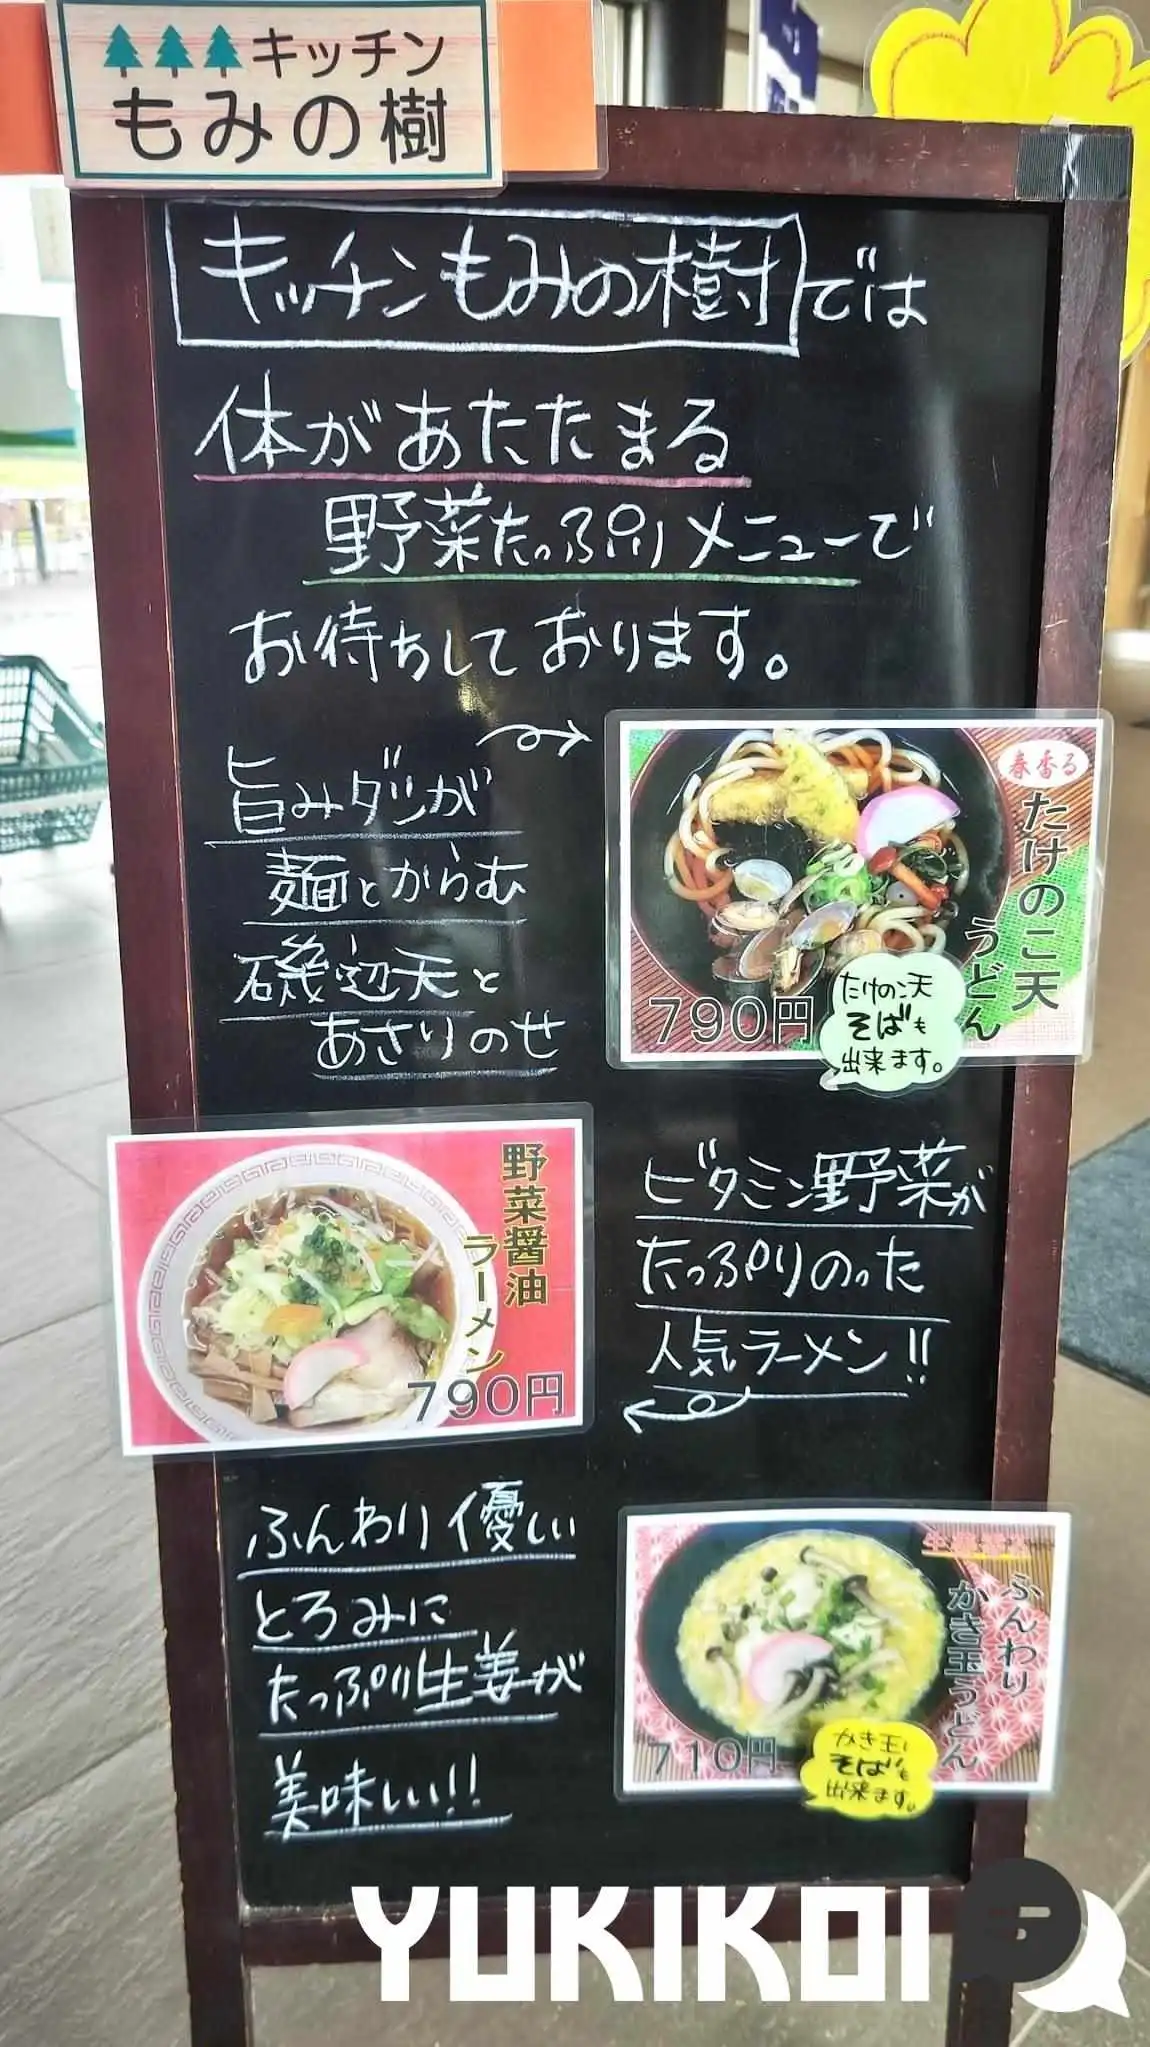 キッチン
もみの樹
キッチンもみの樹では
体があたたまる
野菜たっぷりメニューで
お待ちしております。
旨みダシが
麺とからむ
磯辺天と
あさりのせ
春香る
たけのこ天
うどん
790円
たけのこ天
そばも
出来ます。
野菜醤油
ラーメン
790円
ビタミン野菜が
たっぷりのった
人気ラーメン!!
ふんわり優しい
とろみに
たっぷり生姜が
美味しい!!
ふんわり
かき玉うどん
710円
かき玉
そばも
出来ます。
YUKIKOI